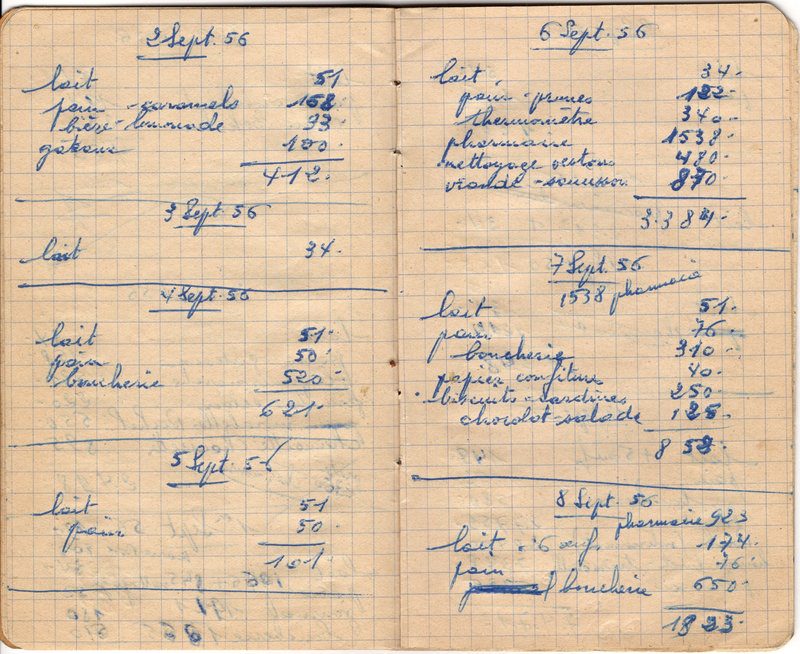 2 Sept. 56
lait 51
pain - caramels 168
bière - limonade 33
gâteaux 100
412.
3 Sept. 56
lait 34.
4 Sept. 56
lait 51.
pain 50.
boucherie 520.
621.
5 Sept. 56
lait 51
pain 50.
101.
6 Sept. 56
lait 34.
pain - prunes 122.
thermomètre 340.
pharmacie 1538.
nettoyage 480.
viande - saucisson 870.
3.384.
7 Sept. 56
1538 pharmacie
lait 51.
pain 76.
boucherie 310.
papier confiture 40.
biscuits - sardines 250.
chocolat - salade 125.
858.
8 Sept. 56
pharmacie 923
lait - 6 œufs 174.
pain 76.
boucherie 650.
1823.